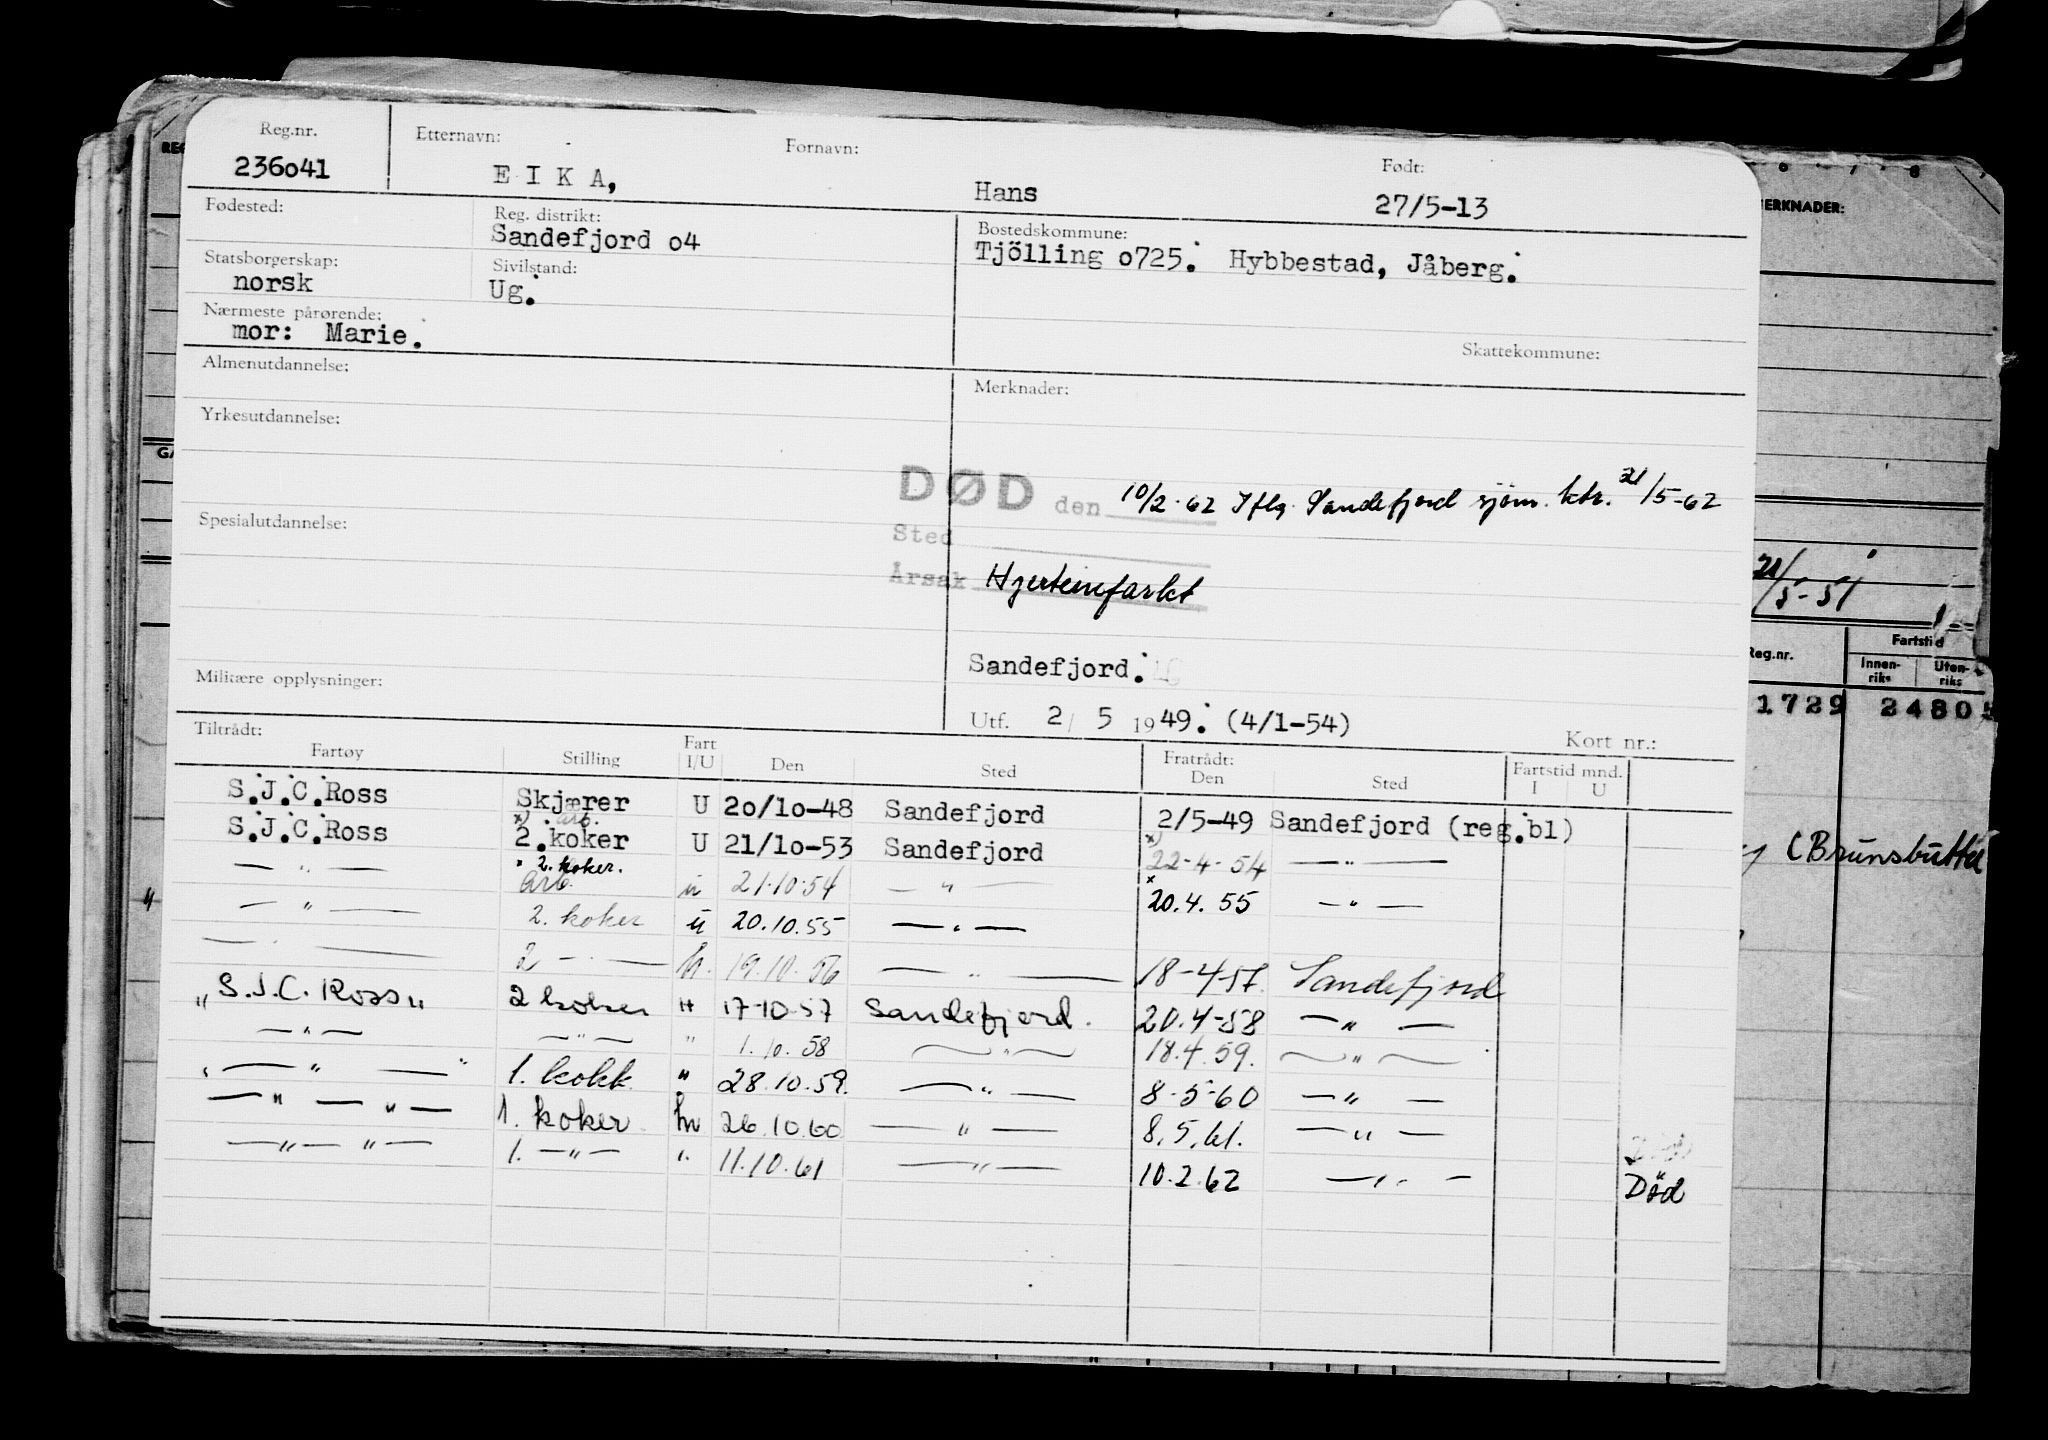 Reg.nr. Etternavn: Fornavn: Født:
236o41 E I K A, Hans 27/5-13
Fødested: Reg. distrikt: Bostedskommune:
Sandefjord o4 Tjölling o725. Hybbestad, Jåberg.
Statsborgerskap: Sivilstand:
norsk Ug.
Nærmeste pårørende:
mor: Marie.
Skattekommune:
Almenutdannelse: Merknader:
Yrkesutdannelse:
DØD den 10/2-62 Iflg. Sandefjord sjöm. ktr. 21/5-62
Spesialutdannelse: Sted
Årsak Hjerteinfarkt
Sandefjord.
Militære opplysninger:
Utf. 2/ 5 1949. (4/1-54)
Tiltrådt: Kort nr.:
Fartøy Stilling Fart I/U Den Sted Fratrådt: Den Sted Fartstid mnd. I U
S.J.C.Ross Skjærer U 2o/1o-48 Sandefjord 2/5-49 Sandefjord (reg.bl)
x) arb.
S.J.C.Ross 2.koker U 21/1o-53 Sandefjord x) 22-4-54 — " —
x 2. koker.
— " — arb. u 21.10.54 — " — x 20.4.55 — " —
— " — 2. koker u 20.10.55 — " —
— " — 2 — " — h. 19.10.56 — " — 18-4-57. Sandefjord
"S.J.C. Ross" 2 koker " 17-10-57 Sandefjord. 20.4-58 — " —
— " — — " — " 1.10.58 — " — 18.4.59. — " —
— " — 1. kokk " 28.10.59. — " — 8-5-60 — " —
— " — " — 1. koker hv 26.10.60 — " — 8.5.61. — " —
— " — " — 1. — " — " 11.10.61 — " — 10.2.62 — " — Död
MERKNADER:
21/5-51
Reg.nr. Fartstid
Innen-riks Uten-riks
1729 24805
(Brunsbüttel